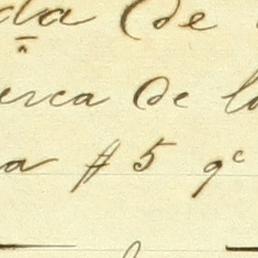 da de
erca de l
a f 5 qᶜ